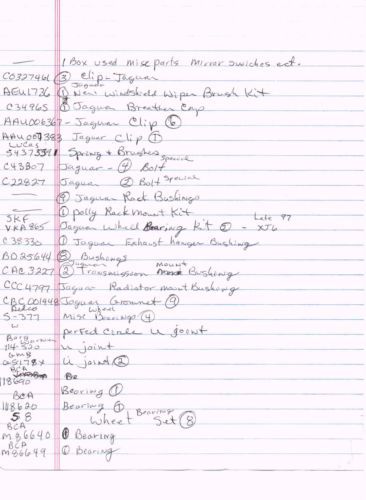 — 1 Box used misc parts mirror swiches ect.
CO327461 ③ Clip - Jaguar
AEU1726 ① Jaguar New Windshield Wiper Brush Kit
C34965 ① Jaguar Breather Cap
AAU006367 - Jaguar Clip ⑥
AAU007383 Jaguar Clip ①
LUCAS
54373591 Spring & Brushes
C43807 Jaguar - ④ Special Bolt
C22827 Jaguar ② Bolt Special
— ④ Jaguar Rack Bushings
— ① polly Rack mount Kit
SKF
VKA865 Jaguar Wheel Bearing Kit ② - Late 97 XJ6
C38330 ① Jaguar Exhaust hanger Bushing
BO25644 ⑧ Bushings
CAC3227 ② Jaguar Transmission Mount Bushing
CCC4797 Jaguar Radiator mount Bushing
CBC001948 Jaguar Grommet ④
Delco
S-377 Misc Wheel Bearings ④
perfect Circle U joint
Borg Warner
114-520 U joint
GMB
U joint ②
BCA
118690 Bearing ①
BCA
118620 Bearing ①
58 Wheel Bearing Set ⑧
BCA
M86640 ① Bearing
BCA
M86649 ① Bearing